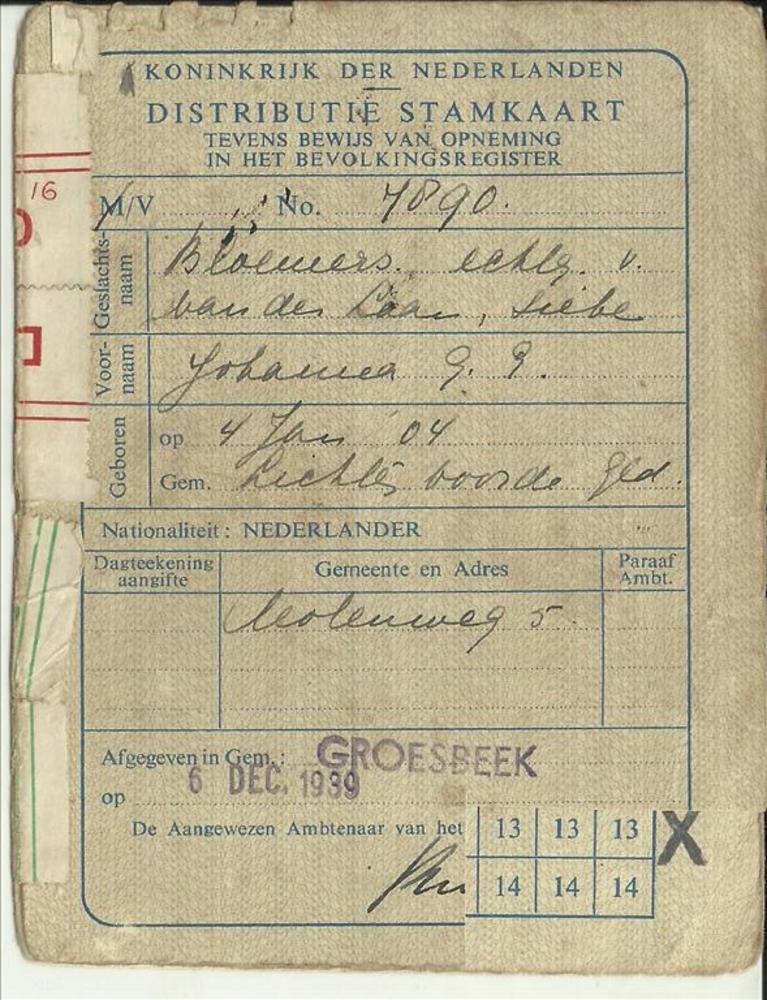 KONINKRIJK DER NEDERLANDEN
DISTRIBUTIE STAMKAART
TEVENS BEWIJS VAN OPNEMING
IN HET BEVOLKINGSREGISTER
16
M/V No. 7890.
Geslachts-naam
Bloemers. echtg. v.
van der Laan, Siebe
Voor-naam
Johanna G. P.
Geboren
op 4 Jan 04
Gem. Lichtenvoorde Gld.
Nationaliteit: NEDERLANDER
Dagteekening aangifte Gemeente en Adres Paraaf Ambt.
Molenweg 5
Afgegeven in Gem.: GROESBEEK
op 6 DEC. 1939
De Aangewezen Ambtenaar van het
13 13 13 X
14 14 14